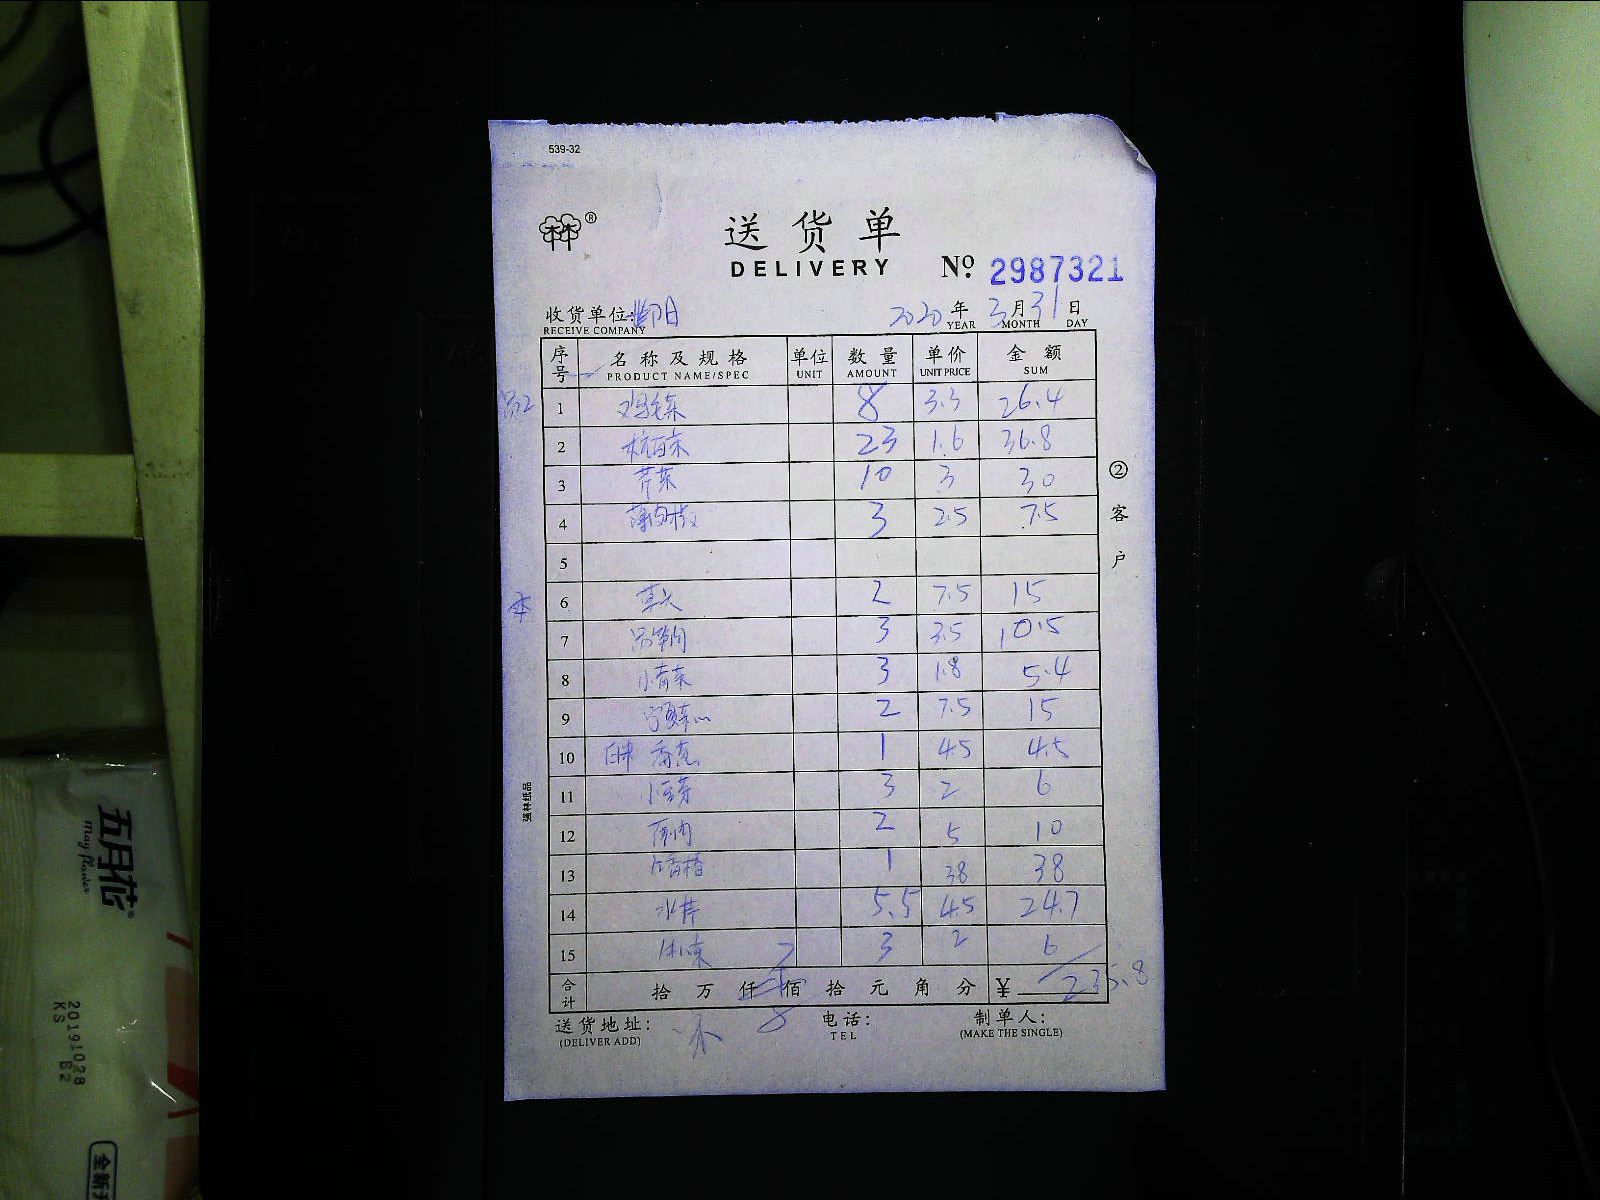 539-32
林®
送货单
DELIVERY № 2987321
收货单位: 2020年3月31日
RECEIVE COMPANY YEAR MONTH DAY
序号 名称及规格 单位 数量 单价 金额
PRODUCT NAME/SPEC UNIT AMOUNT UNIT PRICE SUM
1 鸡毛菜 8 3.3 26.4
2 杭白菜 23 1.6 36.8
3 芹菜 10 3 30
4 薄肉椒 3 2.5 7.5
5
6 草头 2 7.5 15
7 3 3.5 10.5
8 小青菜 3 1.8 5.4
9 2 7.5 15
10 香葱 1 4.5 4.5
11 3 2 6
12 2 5 10
13 1 38 38
14 水芹 5.5 4.5 24.7
15 3 2 6
合计 拾万仟佰拾元角分 ¥ 235.8
送货地址: 电话: 制单人:
(DELIVER ADD) TEL (MAKE THE SINGLE)
② 客户
强林纸品
五月花
May Flower
20191028
KS B2